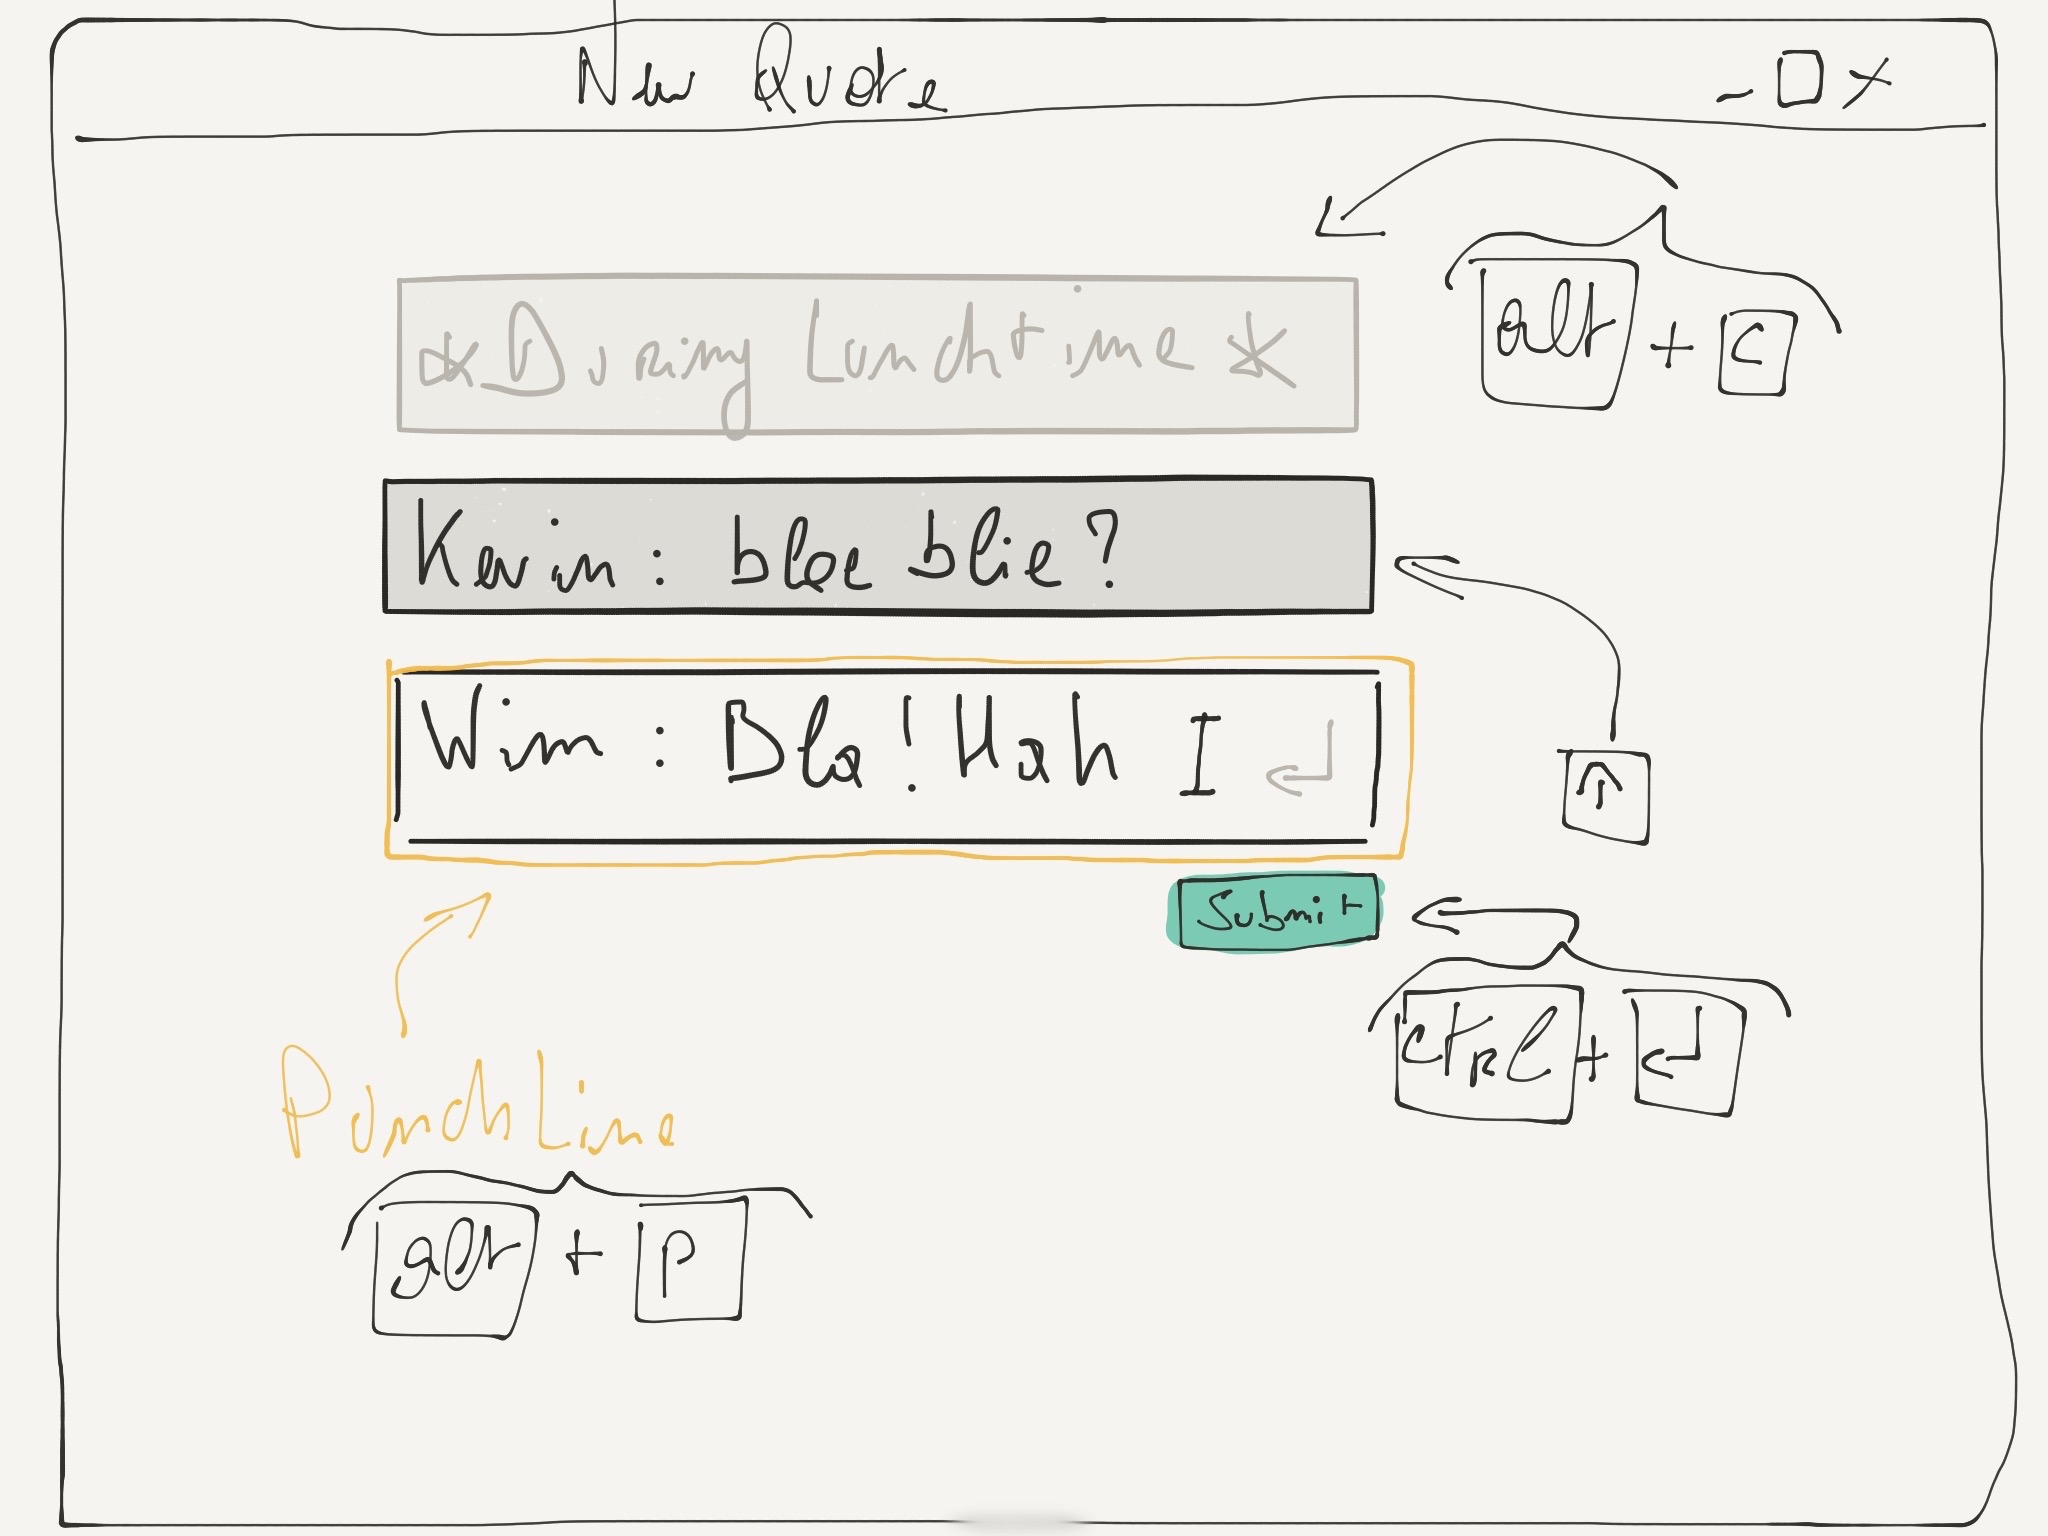 New Quote
alt + c
*During Lunchtime*
Kevin: blae blie?
Wim: Bla! Hah I ↵
↑
Submit
ctrl + ↵
PunchLine
alt + p